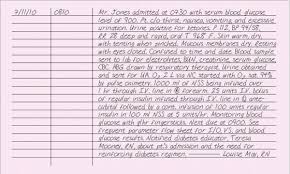 9/11/10 0810 Mr. Jones admitted at 0730 with serum blood glucose
level of 900. Pt. c/o thirst, nausea, vomiting, and excessive
urination. Urine positive for ketones. P 112, BP 94/58,
RR 28 deep and rapid, oral T 96.8 F. Skin warm, dry,
with tenting when pinched. Mucous membranes dry. Resting
with eyes closed. Confused to time and date. Blood sample
sent to lab for electrolytes, BUN, creatinine serum glucose,
CBC. ABG drawn by respiratory therapist. Urine obtained and
sent for UA. O2 2 L via NC started with O2 sat. 94%
by pulse oximetry. 1000 ml of NSS being infused over
1 hr through I.V. line in forearm. 25 units I.V. bolus
of regular insulin infused through I.V. line in ante-
cubital followed by a cont. infusion of 100 units regular
insulin in 100 ml NSS at 5 units/hr. Monitoring blood
glucose with q1hr fingersticks. Next due at 0900. See
frequent parameter flow sheet for I/O, VS, and blood
glucose results. Notified diabetes educator, Teresa
Mooney, RN, about pt.'s admission and the need for
reinforcing diabetes regimen. Louise May, RN